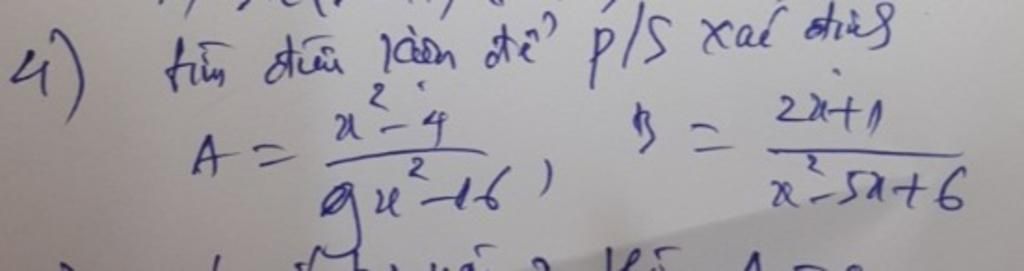 4) tìm điều kiện để p/s xác định
A = (x² - 4)/(9x² - 16) , B = (2x + 1)/(x² - 5x + 6)